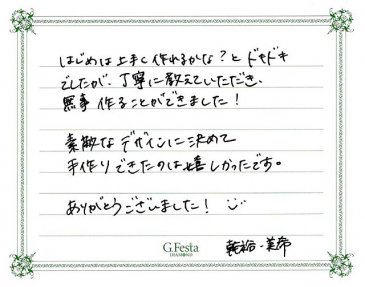 はじめは上手く作れるかな？とドキドキ
でしたが、丁寧に教えていただき、
無事作ることができました！
素敵なデザインに決めて
手作りできたのは嬉しかったです。
ありがとうございました！
G.Festa
DIAMOND
美希